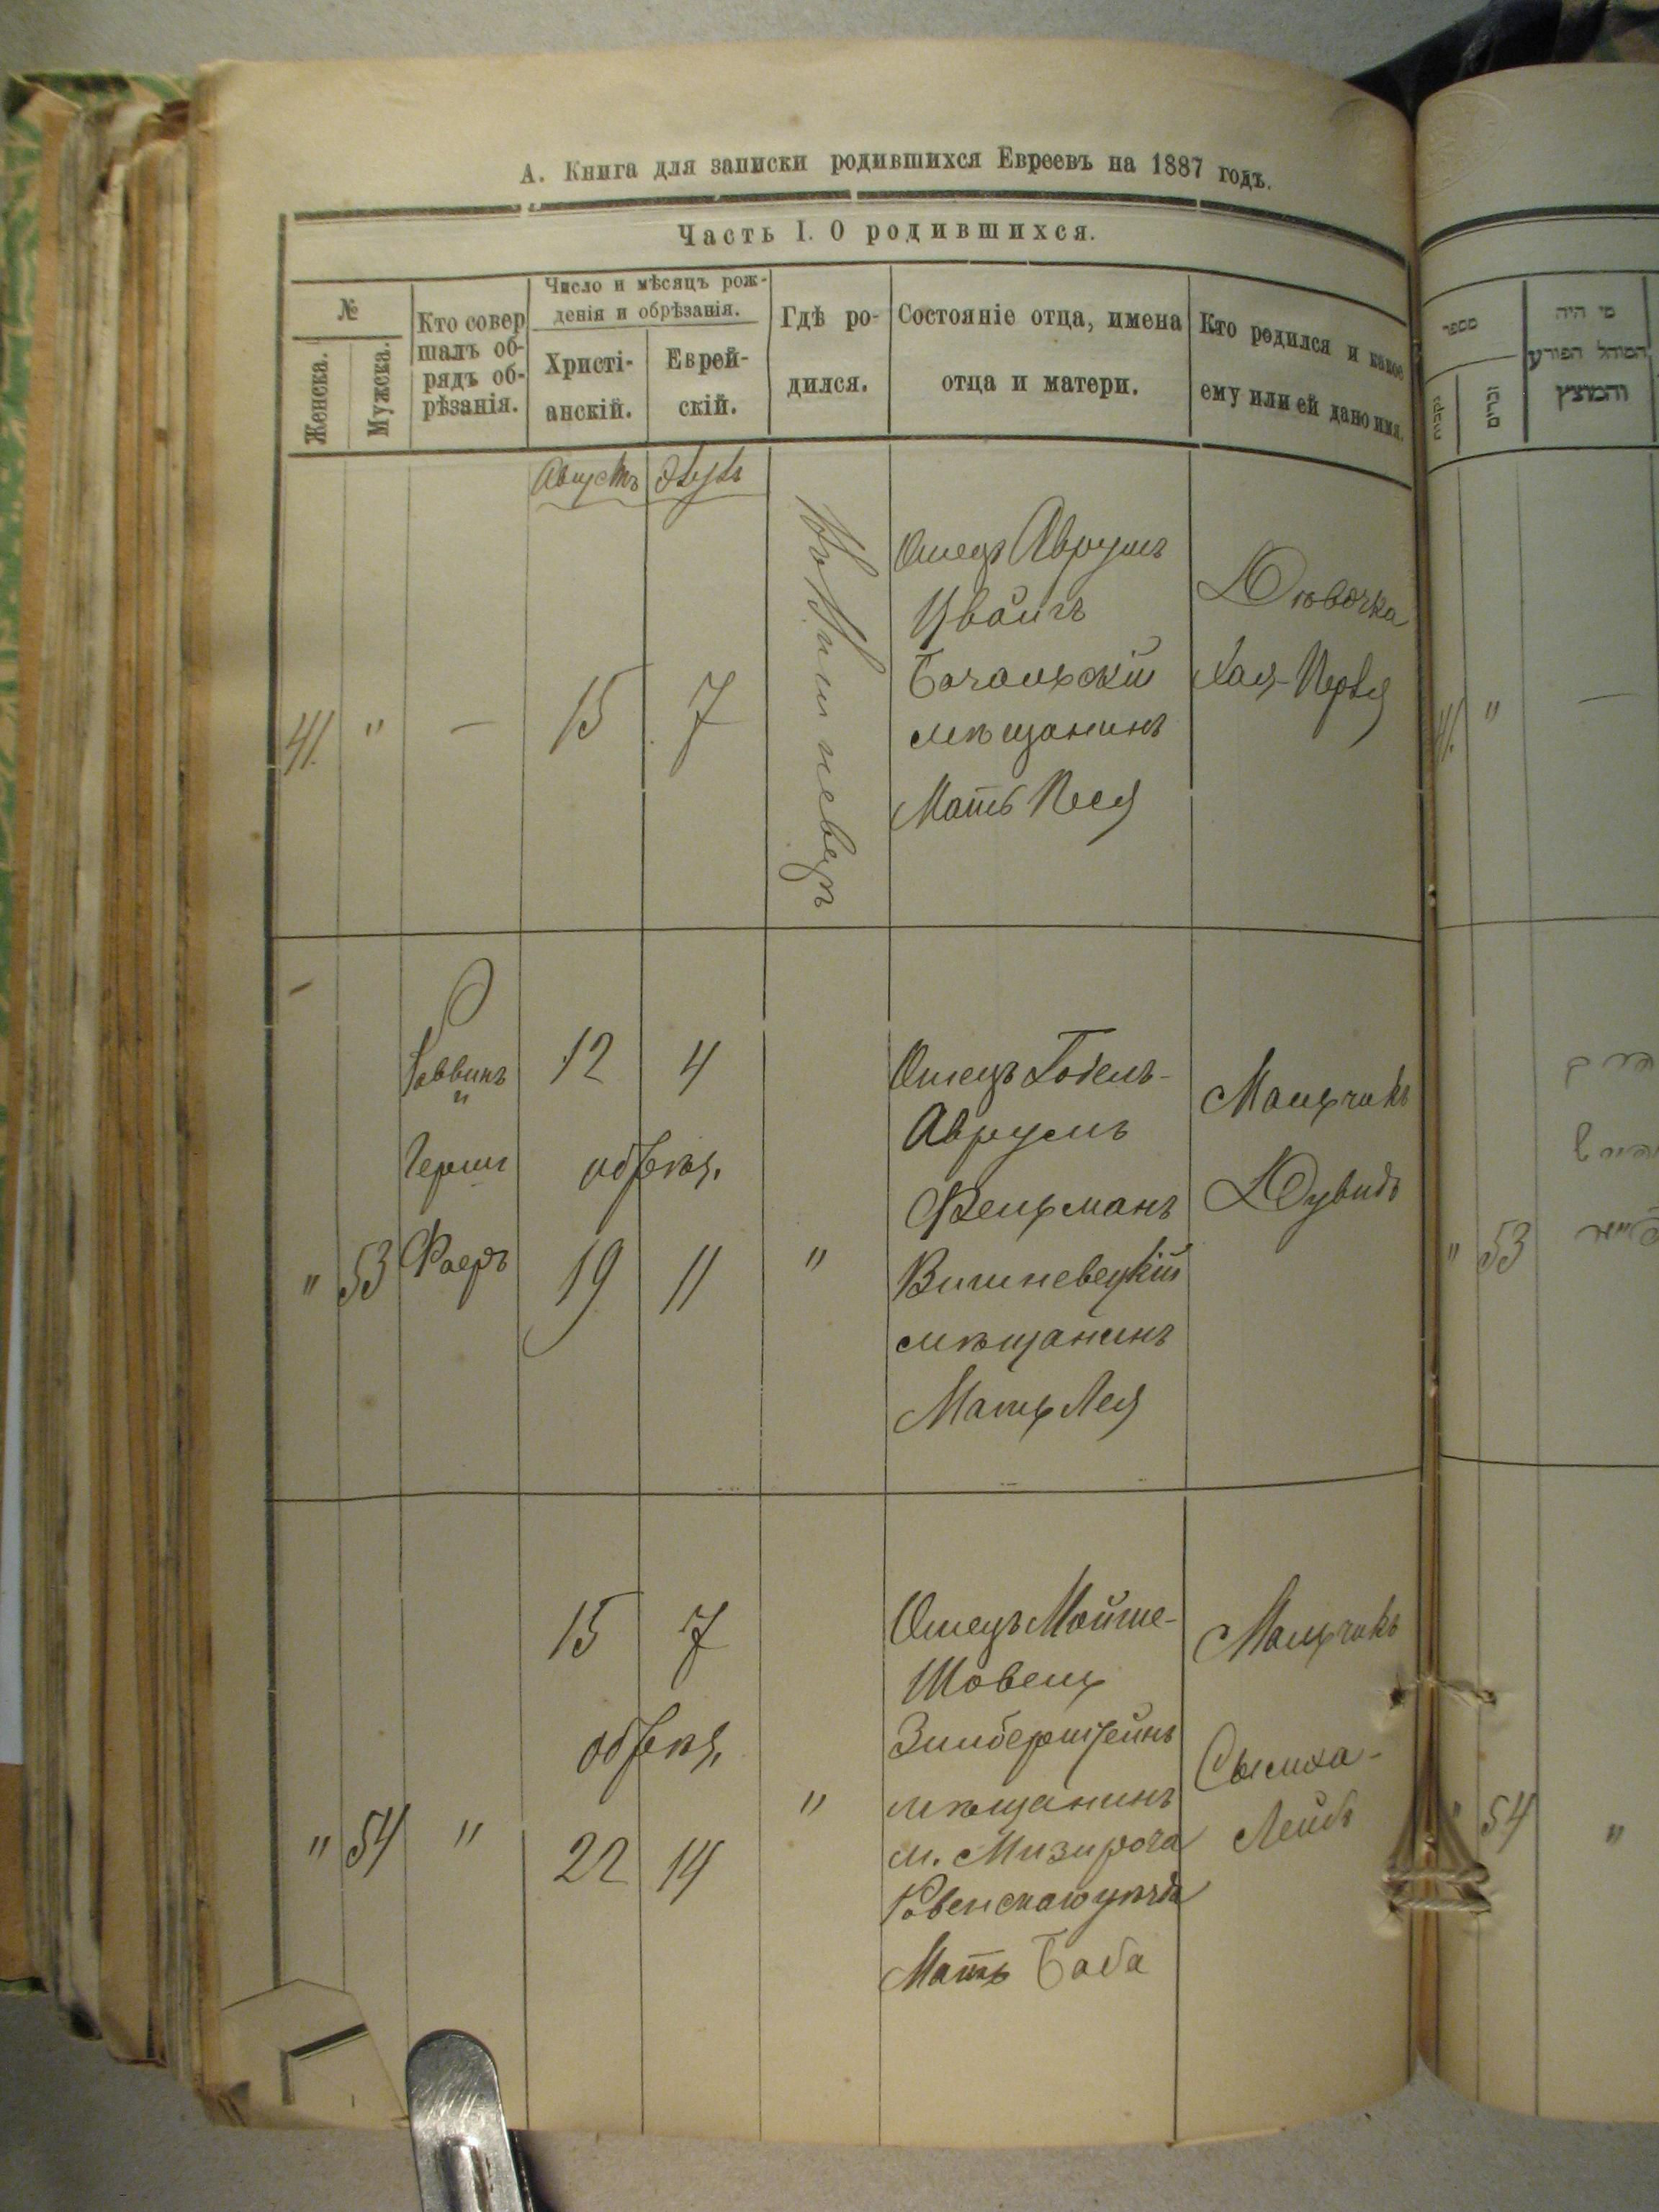 А. Книга для записки родившихся Евреевъ на 1887 годъ.
Часть I. О родившихся.
№
Женска.
Мужска.
Кто совер
шалъ об-
рядъ об-
рѣзанія.
Число и мѣсяцъ рож-
денія и обрѣзанія.
Христі-
анскій.
Еврей-
скій.
Гдѣ ро-
дился.
Состояніе отца, имена
отца и матери.
Кто родился и какое
ему или ей дано имя.
Августъ
41. " — 15 7
Въ Вишневцѣ
Отецъ Аврумъ
Цвайгъ
мѣщанинъ
Мать Песя
Дѣвочка
Хая-Перля
" 53
Раввинъ
и
Герш
Фаеръ
12 4
обрѣз.
19 11
"
Отецъ Годель-
Аврумъ
Фельманъ
Вишневецкій
мѣщанинъ
Мать Лея
Мальчикъ
Дувидъ
" 54 "
15 7
обрѣз.
22 14
"
Отецъ Мойше-
Зильберштейнъ
мѣщанинъ
м. Мизироча
Ровенскаго уѣзда
Мать Баба
Мальчикъ
Сымха-
Лейбъ
מספר
נקבות
זכרים
מי היה
המוהל הפורע
והמוצץ
41. " —
" 53
" 54 "